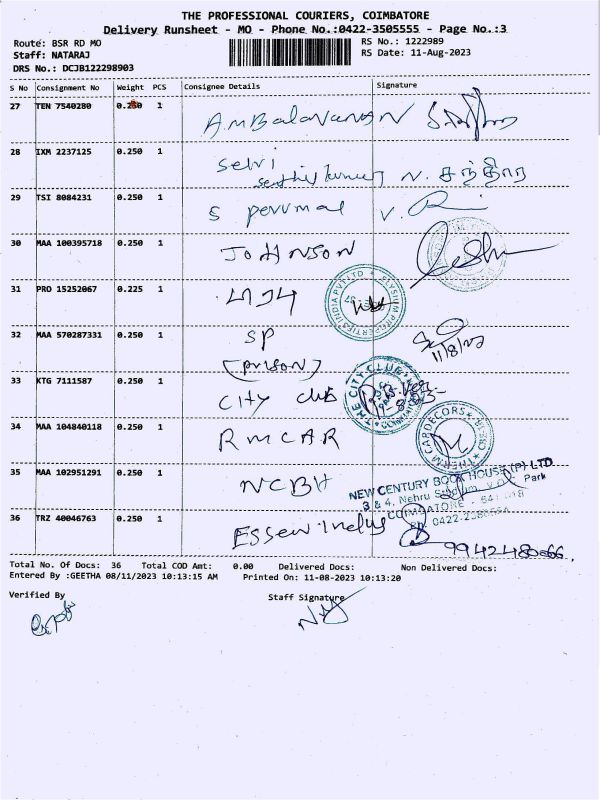 THE PROFESSIONAL COURIERS, COIMBATORE
Delivery Runsheet - MO - Phone No.:0422-3505555 - Page No.:3
Route: BSR RD MO
Staff: NATARAJ
DRS No.: DCJB122298903
RS No.: 1222989
RS Date: 11-Aug-2023
S No Consignment No Weight PCS Consignee Details Signature
27 TEN 7540280 0.250 1 AmBalavanan
28 IXM 2237125 0.250 1 Selvi
senthil kumar N. சந்திரா
29 TSI 8084231 0.250 1 S perumal V.
30 MAA 100395718 0.250 1 JOHNSON
31 PRO 15252067 0.225 1
ELYSIUM PROPERTIES INDIA PVT LTD
32 MAA 570287331 0.250 1 SP
(prison) 11/8/23
33 KTG 7111587 0.250 1 CITY club
THE CITY CLUB
34 MAA 104840118 0.250 1 RMCAR
THERM CARDECORS
35 MAA 102951291 0.250 1 NCBH
NEW CENTURY BOOK HOUSE (P) LTD
3 & 4, Nehru Stadium, V.O.C. Park
COIMBATORE - 641 018
36 TRZ 40046763 0.250 1 Essen indus
9942480066
Total No. Of Docs: 36 Total COD Amt: 0.00 Delivered Docs: Non Delivered Docs:
Entered By :GEETHA 08/11/2023 10:13:15 AM Printed On: 11-08-2023 10:13:20
Verified By Staff Signature